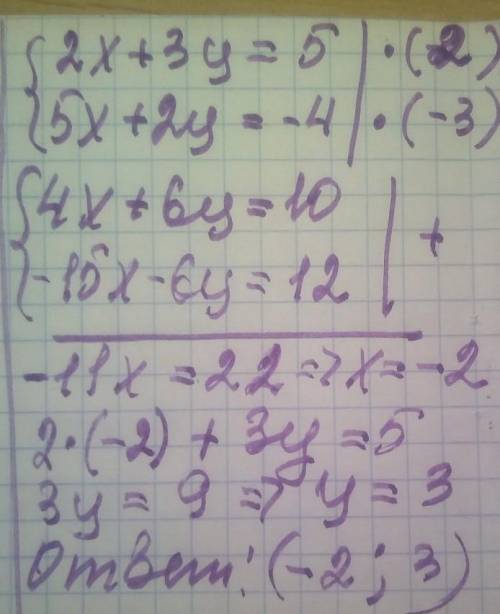 { 2x+3y = 5 | · (-2)
{ 5x+2y = -4 | · (-3)
{ 4x+6y=10 |
{ -15x-6y=12 | +
-11x = 22 => x=-2
2·(-2) + 3y = 5
3y = 9 => y = 3
Ответ: (-2; 3)